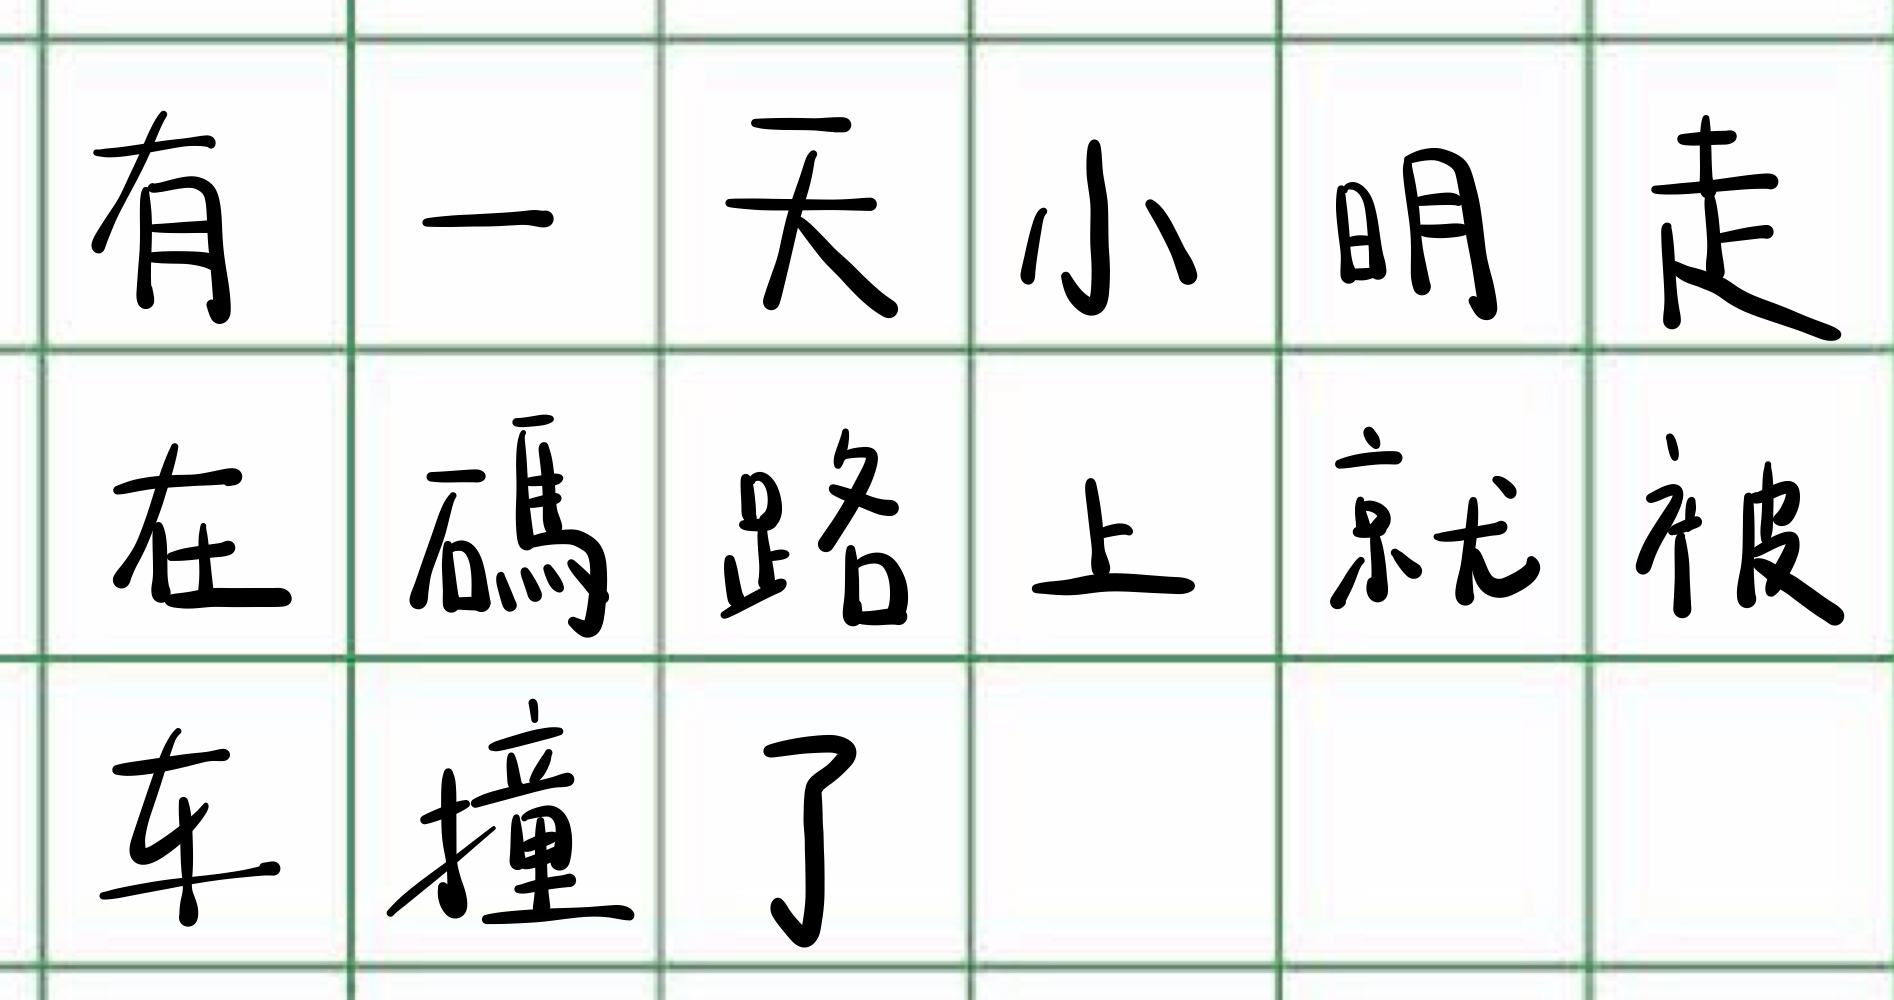 有一天小明走
在碼路上就被
车撞了